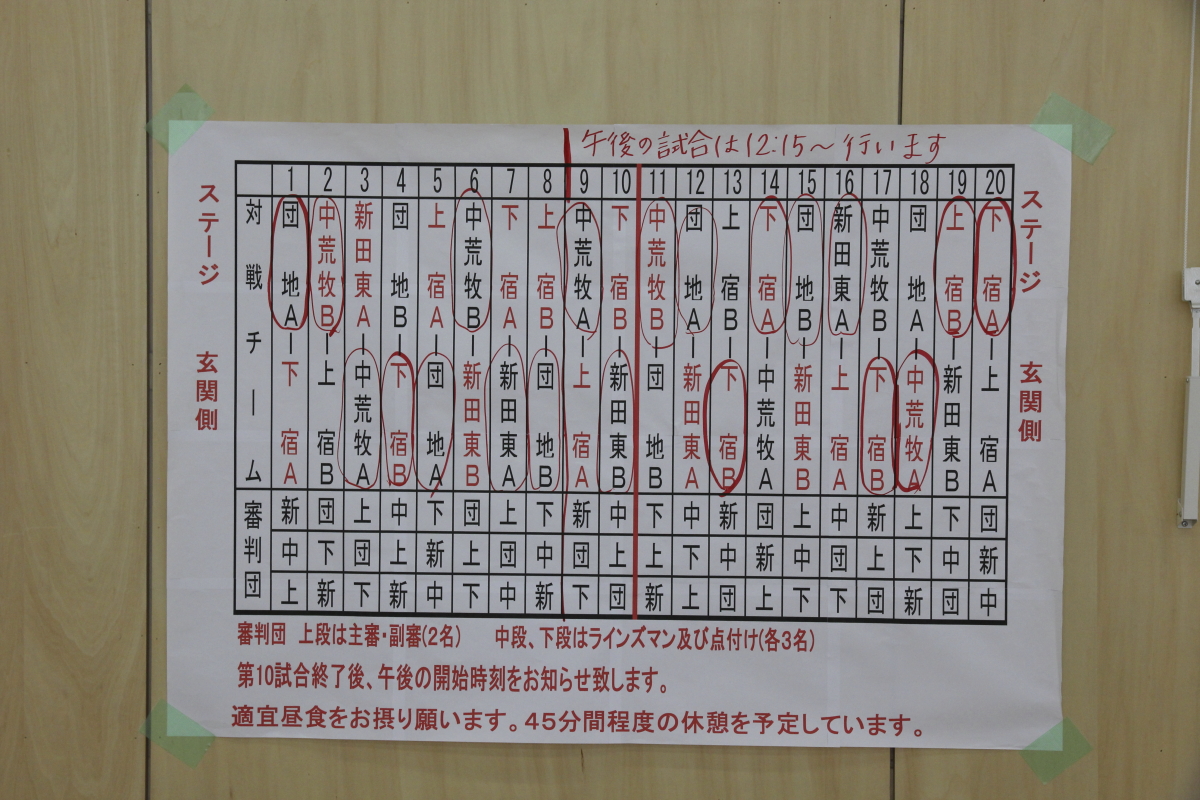 午後の試合は12:15〜行います
ステージ 玄関側
1 2 3 4 5 6 7 8 9 10 11 12 13 14 15 16 17 18 19 20
対戦チーム
団地Aー下宿A
中荒牧Bー上宿B
新田東Aー中荒牧A
団地Bー下宿B
上宿Aー団地A
中荒牧Bー新田東B
下宿Aー新田東A
上宿Bー団地B
中荒牧Aー上宿A
下宿Bー新田東B
中荒牧Bー団地B
団地Aー新田東A
上宿Bー下宿B
下宿Aー中荒牧A
団地Bー新田東B
新田東Aー上宿A
中荒牧Bー下宿B
団地Aー中荒牧A
上宿Bー新田東B
下宿Aー上宿A
審判団
新 団 上 中 下 団 上 下 新 中 下 中 新 団 上 中 新 上 下 団
中 下 団 上 新 上 団 中 団 上 上 下 中 新 中 団 上 下 中 新
上 新 下 新 中 下 中 新 下 団 新 上 団 上 下 下 団 新 団 中
ステージ 玄関側
審判団 上段は主審・副審(2名) 中段、下段はラインズマン及び点付け(各3名)
第10試合終了後、午後の開始時刻をお知らせ致します。
適宜昼食をお摂り願います。45分間程度の休憩を予定しています。